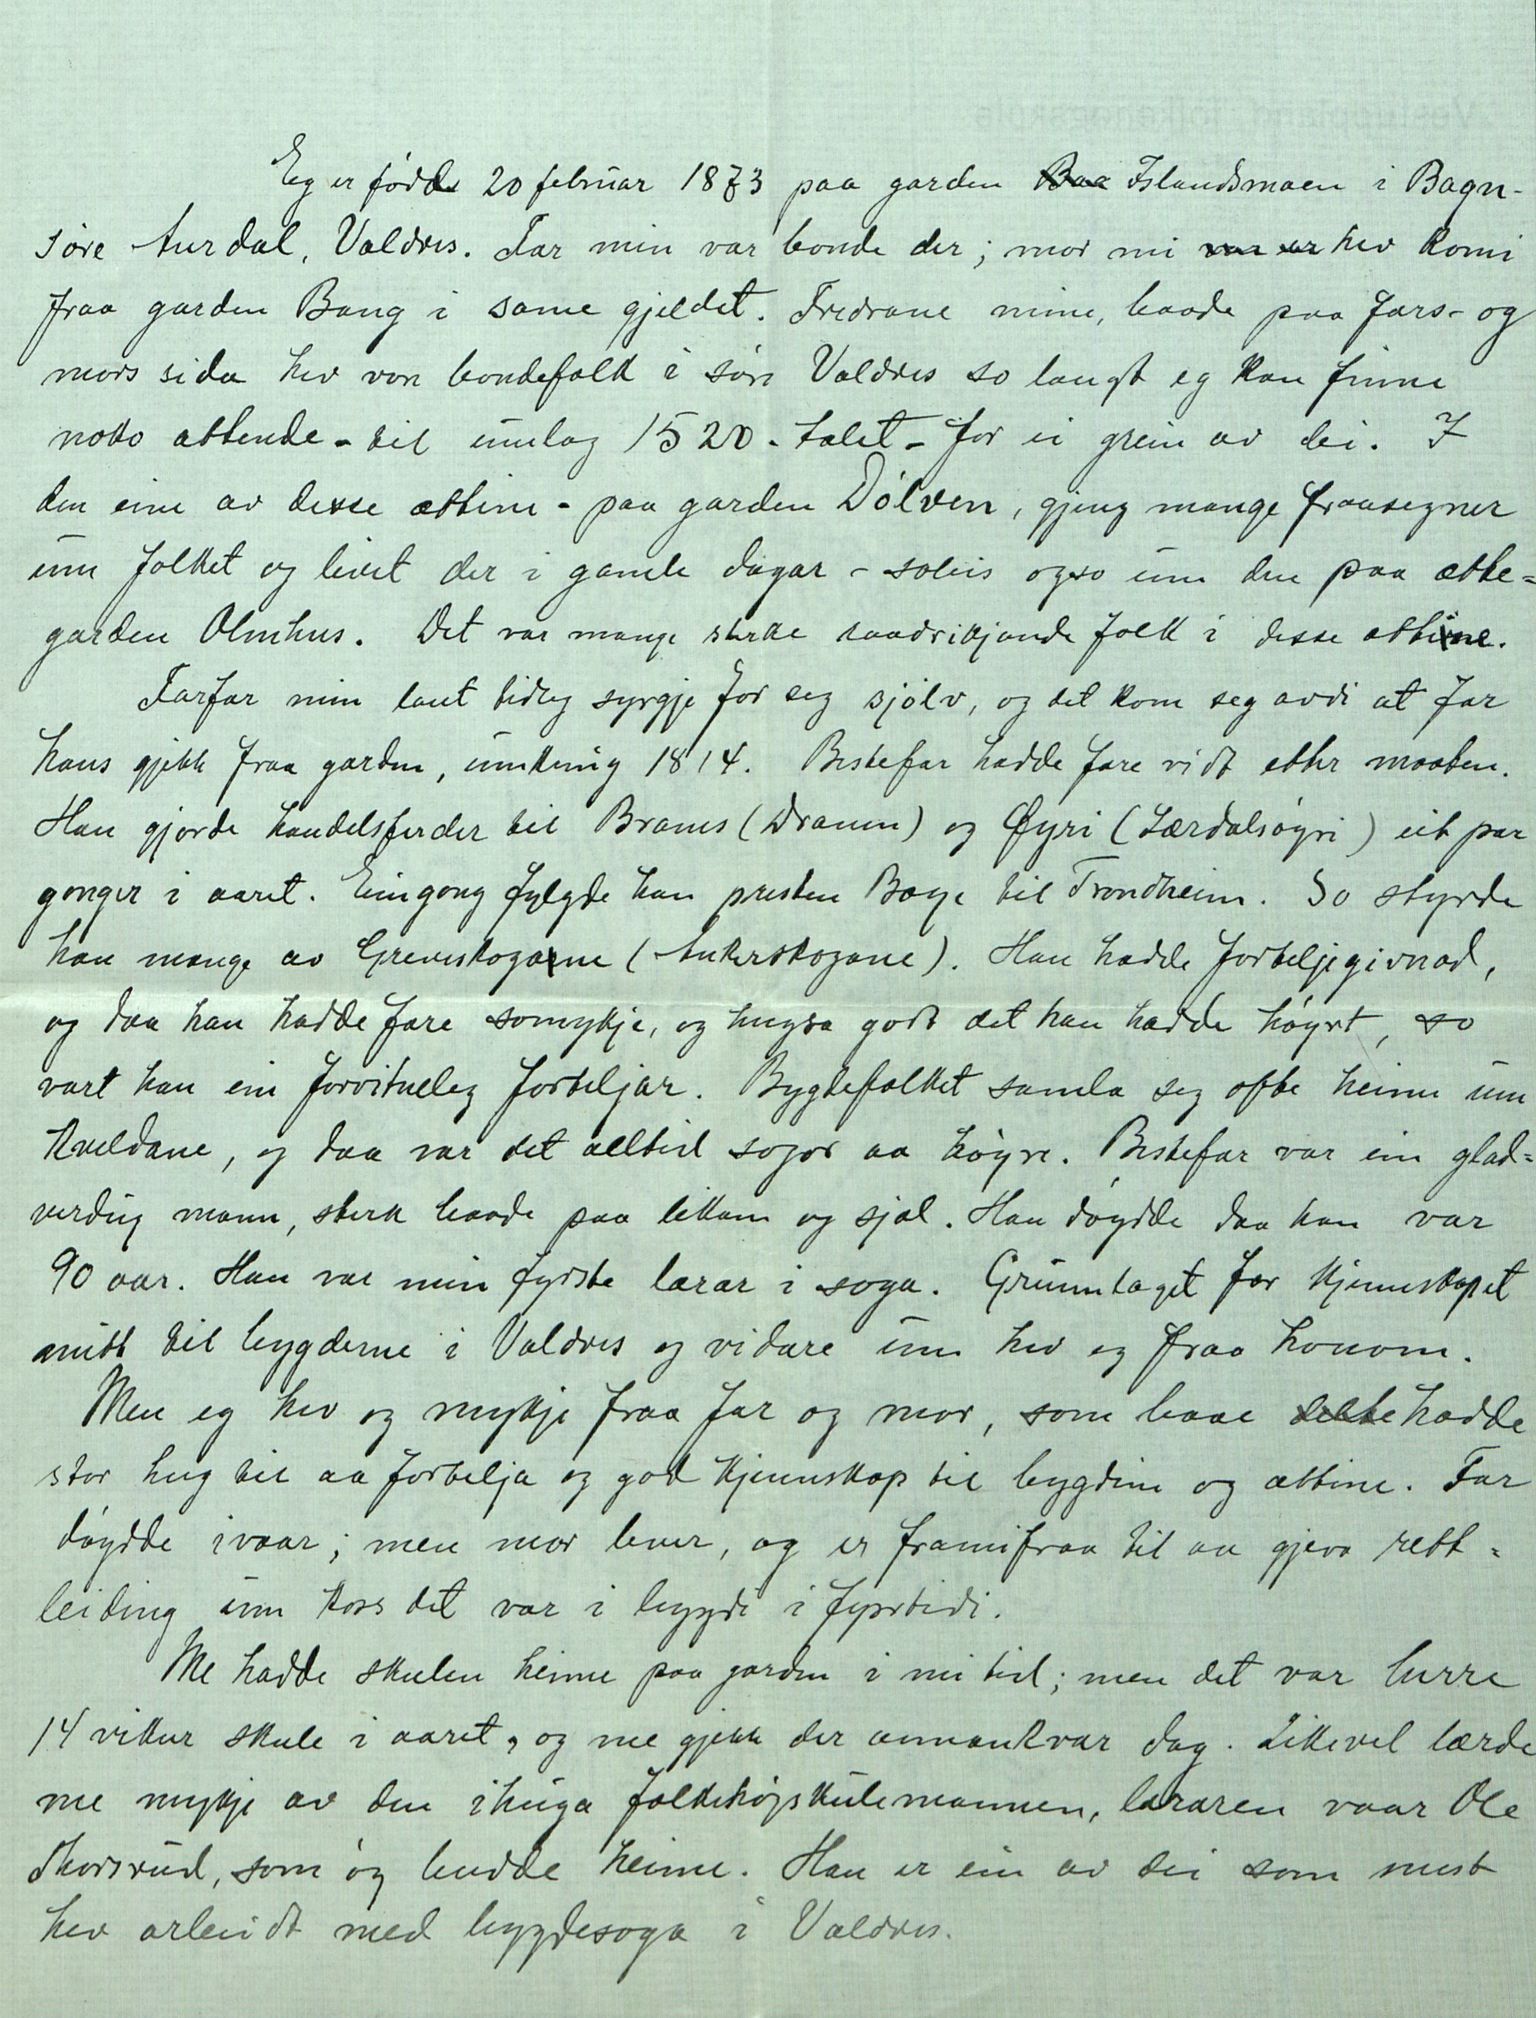 Eg er fødd 20 februar 1873 paa garden Islandsmoen i Bagn-
søre Aurdal, Valdres. Far min var bonde der; mor mi hev komi
fraa garden Bang i same gjeldet. Fedrane mine, baade paa fars- og
mors sida hev vore bondefolk i søre Valdres so langt eg kan finne
noko attende - til umlag 1520-talet - for ei grein av dei. I
den eine av desse ættine - paa garden Dølven, gjeng mange fraasegner
um folket og livet der i gamle dagar - soleis ogso um den paa ætte=
garden Olmhus. Det var mange sterke raadrikjande folk i desse ættine.
Farfar min laut tidleg syrgje for seg sjølv, og det kom seg avdi at far
hans gjekk fraa garden, umkring 1814. Bestefar hadde fare vidt etter maaten.
Han gjorde handelsferder til Brams (Dramn) og Øyri (Lærdalsøyri) eit par
gonger i aaret. Eingong fylgde han presten Boye til Trondheim. So styrde
han mange av Greveskogane (Ankerskogane). Han hadde forteljegivnad,
og daa han hadde fare somykje, og hugsa godt det han hadde høyrt, so
vart han ein forvitneleg forteljar. Bygdefolket samla seg ofte heime um
kveldane, og daa var det alltid sogor aa høyre. Bestefar var ein glad=
verdug mann, sterk baade paa likam og sjæl. Han døydde daa han var
90 aar. Han var min fyrste lærar i soga. Grunnlaget for kjennskapet
mitt til bygderne i Valdres og vidare um hev eg fraa honom.
Men eg hev og mykje fraa far og mor, som baae hadde
stor hug til aa fortelja og god kjennskap til bygdine og ættine. Far
døydde ivaar; men mor lever, og er framifraa til aa gjeva rett=
leiding um koss det var i bygdi i fyrrtidi.
Me hadde skulen heime paa garden i mi tid; men det var berre
14 vikur skule i aaret, og me gjekk der annankvar dag. Likevel lærde
me mykje av den ihuga folkehøgskulemannen, læraren vaar Ole
Thorsrud, som óg budde heime. Han er ein av dei som mest
hev arbeidt med bygdesoga i Valdres.